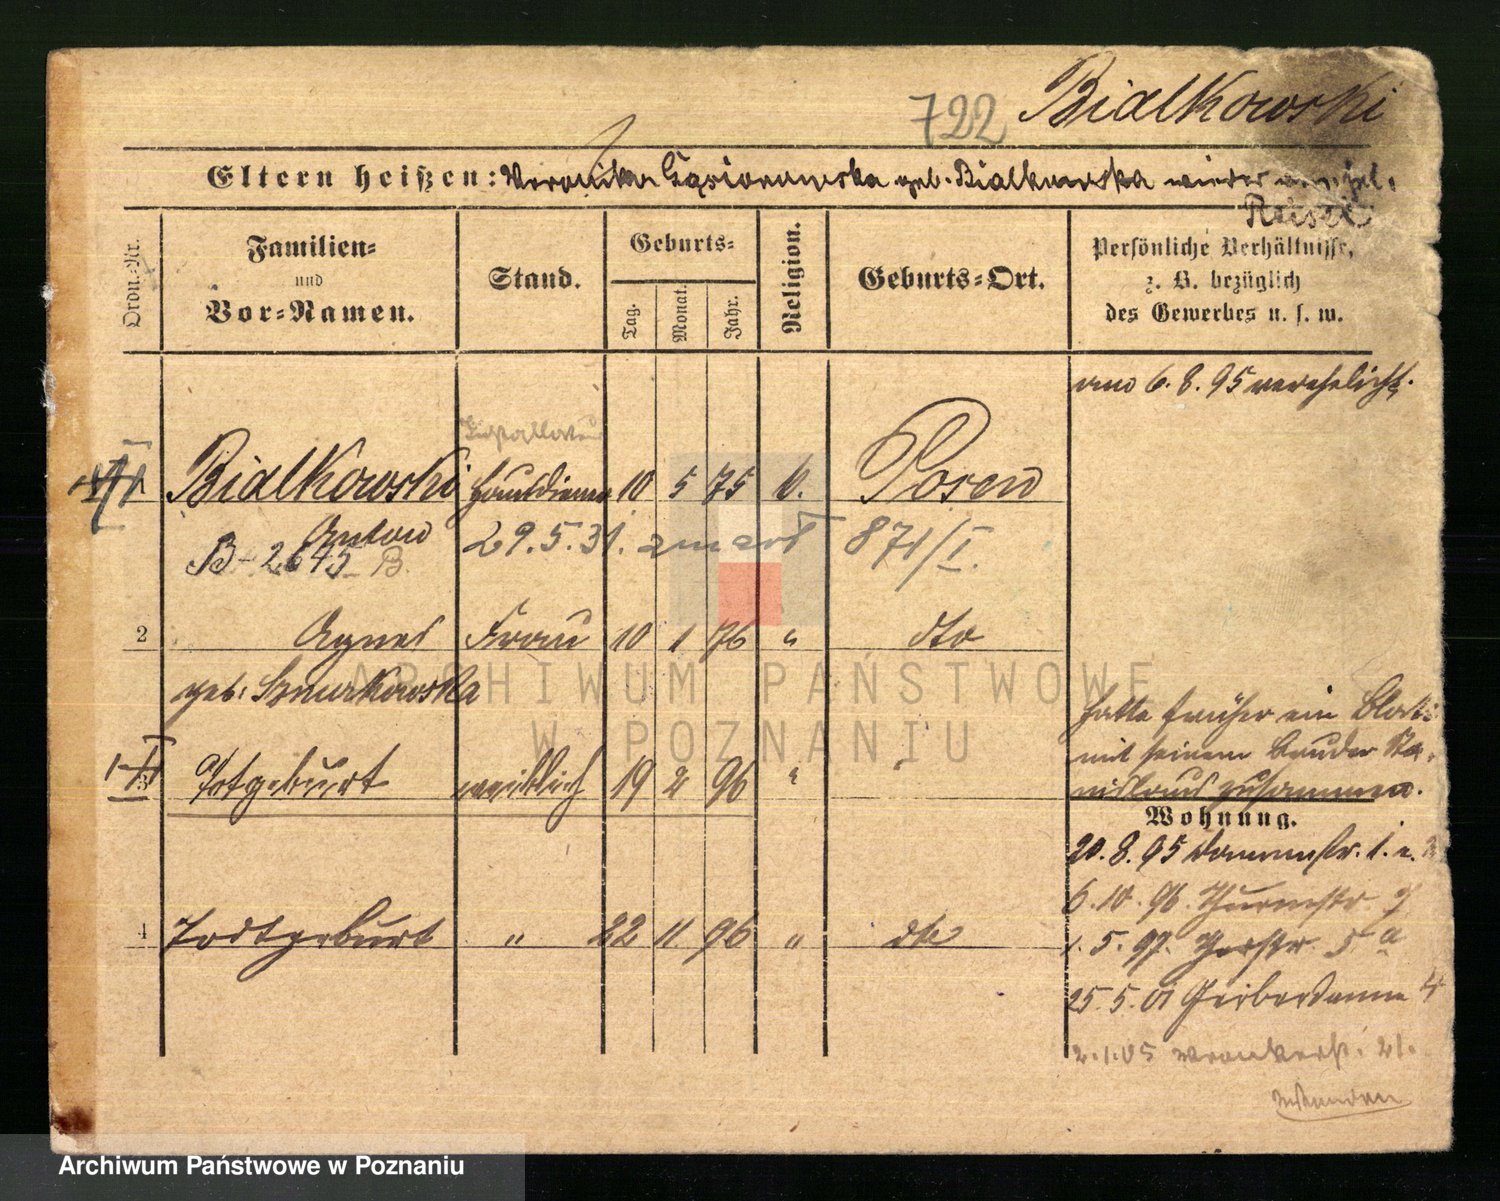 722 Bialkowski
Eltern heißen: Veronika Gąsiorowska geb. Bialkowska wieder
Ordn.-Nr.
Familien-
und
Vor-Namen.
Stand.
Geburts-
Tag.
Monat.
Jahr.
Religion.
Geburts-Ort.
Persönliche Verhältnisse,
z. B. bezüglich
des Gewerbes u. s. w.
am 6. 8. 95 verehelicht.
Installateur
1 Bialkowski Hausdiener 10 5 75 k. Posen
Anton
B-2645 B. 29. 5. 31. zmarł 871/I.
2 Agnes Frau 10 1 76 " dto
geb. Smurkowska
hatte früher ein
mit seinem Bruder Sta-
nislaus zusammen.
3 Totgeburt weiblich 19 2 96 " "
Wohnung.
20. 8. 95 Dammstr. 1. a. 2
6. 10. 96. Thurmstr. 7
4 Todtgeburt " 22 11 96 " dto
1. 5. 97. Gerstr. 5 a
25. 5. 01 Gerberdamm 4
2. 1. 05 Wronkerstr. 21.
ARCHIWUM PAŃSTWOWE
W POZNANIU
Archiwum Państwowe w Poznaniu